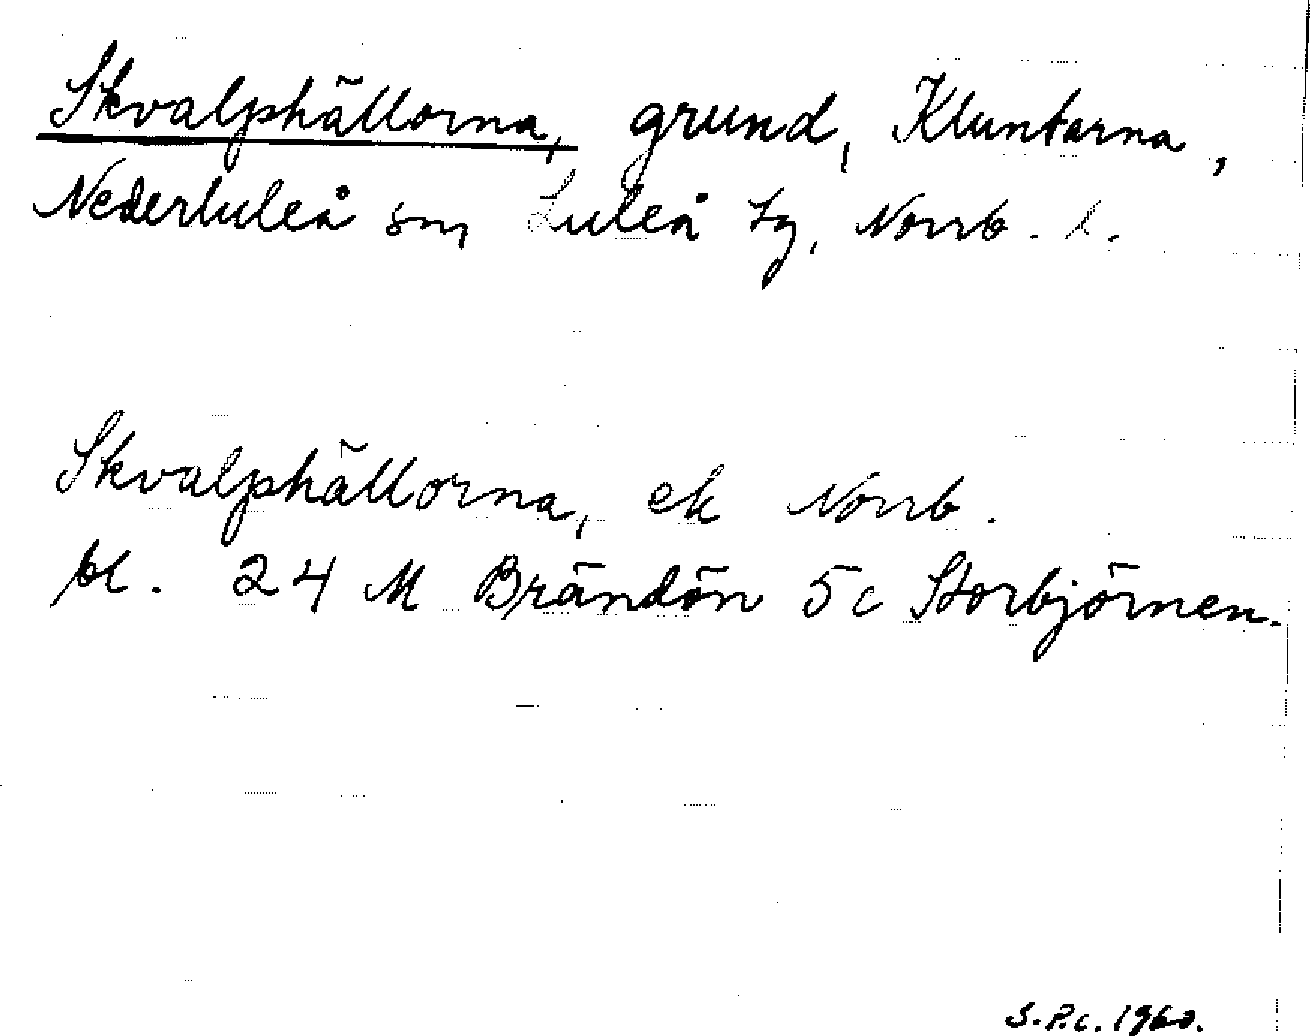 Skvalphällorna, grund, Kluntarna,
Nederluleå sn, Luleå tg, Norrb. l.
Skvalphällorna, ek Norrb.
bl. 24 M Brändön 5c Storbjörnen.
S.P.c. 1960.